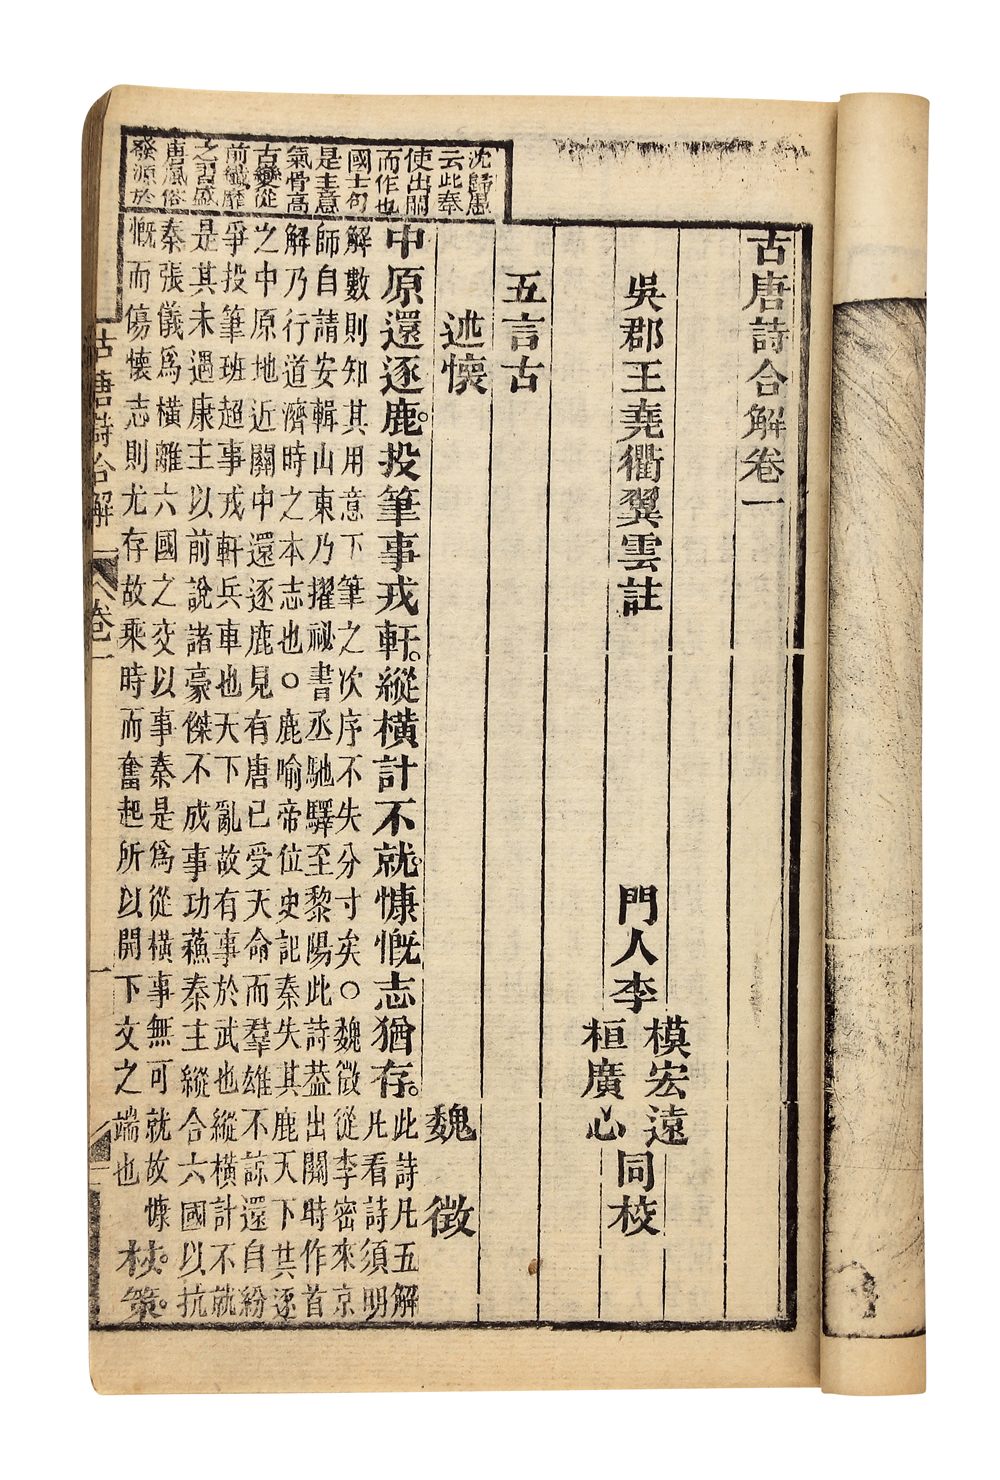 古唐詩合解卷一
吳郡王堯衢翼雲註
門人李
模宏遠
桓廣心
同校
五言古
述懷 魏 徵
沈歸愚
云此奉
使出關
而作也
國士句
是主意
氣骨高
古變從
前纖靡
之習盛
唐風俗
發源於
中原還逐鹿。投筆事戎軒。縱橫計不就。慷慨志猶存。
此詩凡五解
凡看詩須明
解數則知其用意下筆之次序不失分寸矣○魏徵從李密來京
師自請安輯山東乃擢祕書丞馳驛至黎陽此詩葢出關時作首
解乃行道濟時之本志也○鹿喻帝位史記秦失其鹿天下共逐
之中原地近關中還逐鹿見有唐已受天命而羣雄不諒還自紛
爭投筆班超事戎軒兵車也天下亂故有事於武也縱橫計不就
是其未遇康主以前說諸豪傑不成事功蘇秦主縱合六國以抗
秦張儀爲橫離六國之交以事秦是爲從橫事無可就故慷
慨而傷懷志則尤存故乘時而奮起所以開下文之端也
杖策。
古唐詩合解 卷一 一